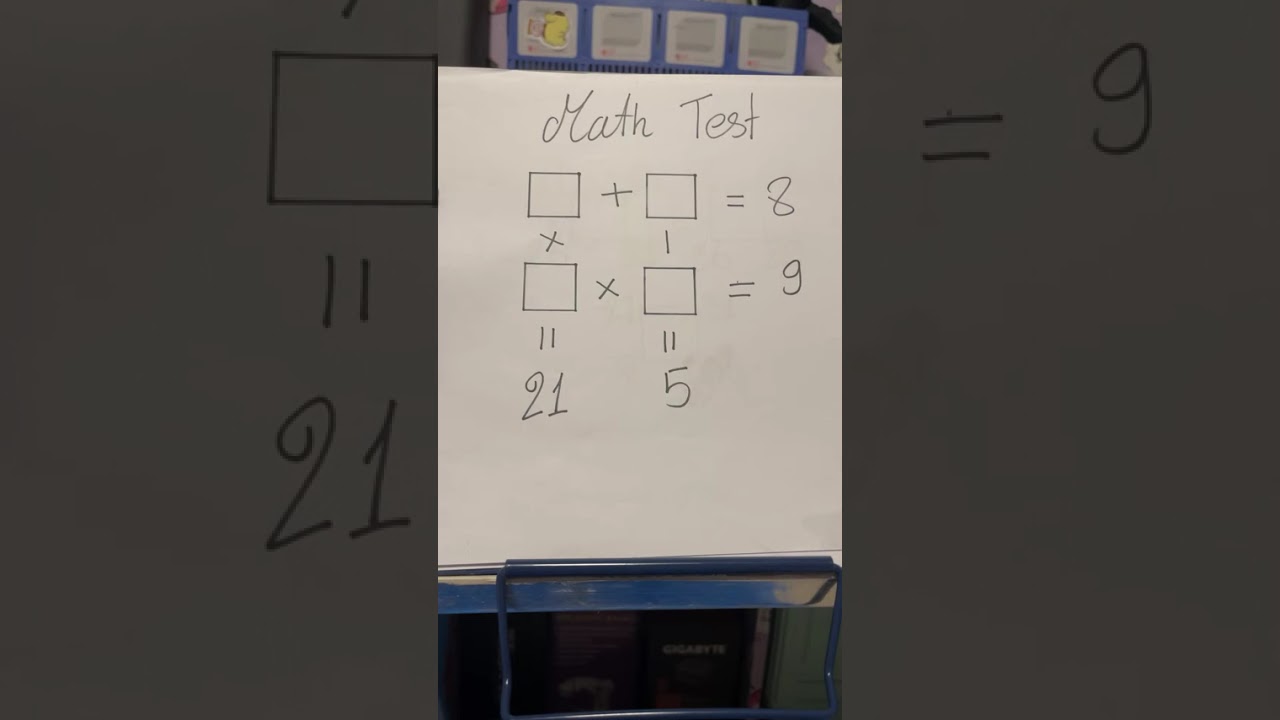 Math Test
□ + □ = 8
× |
□ × □ = 9
|| ||
21 5
GIGABYTE